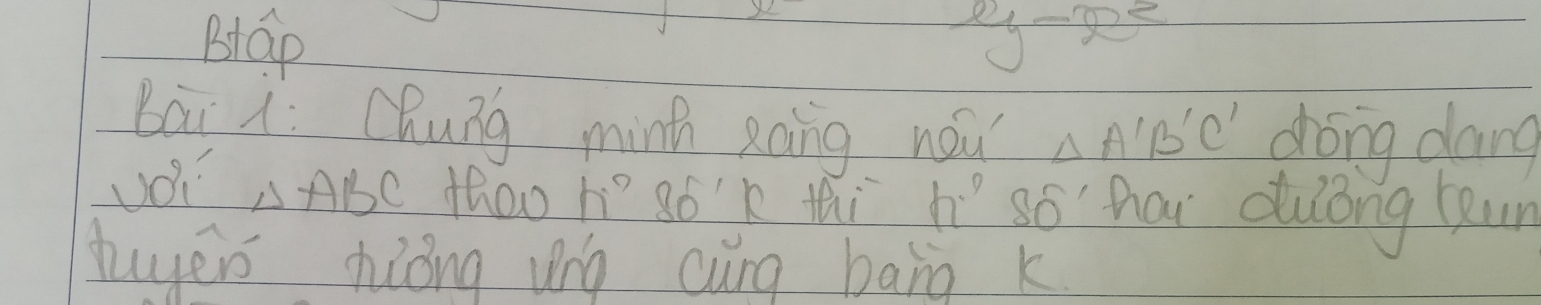 2y - x²
Btập
Bài 1: Chứng minh rằng nếu △A'B'C' đồng dạng
với △ABC theo tỉ số k thì tỉ số hai đường trun
tuyến tương ứng cũng bằng k.